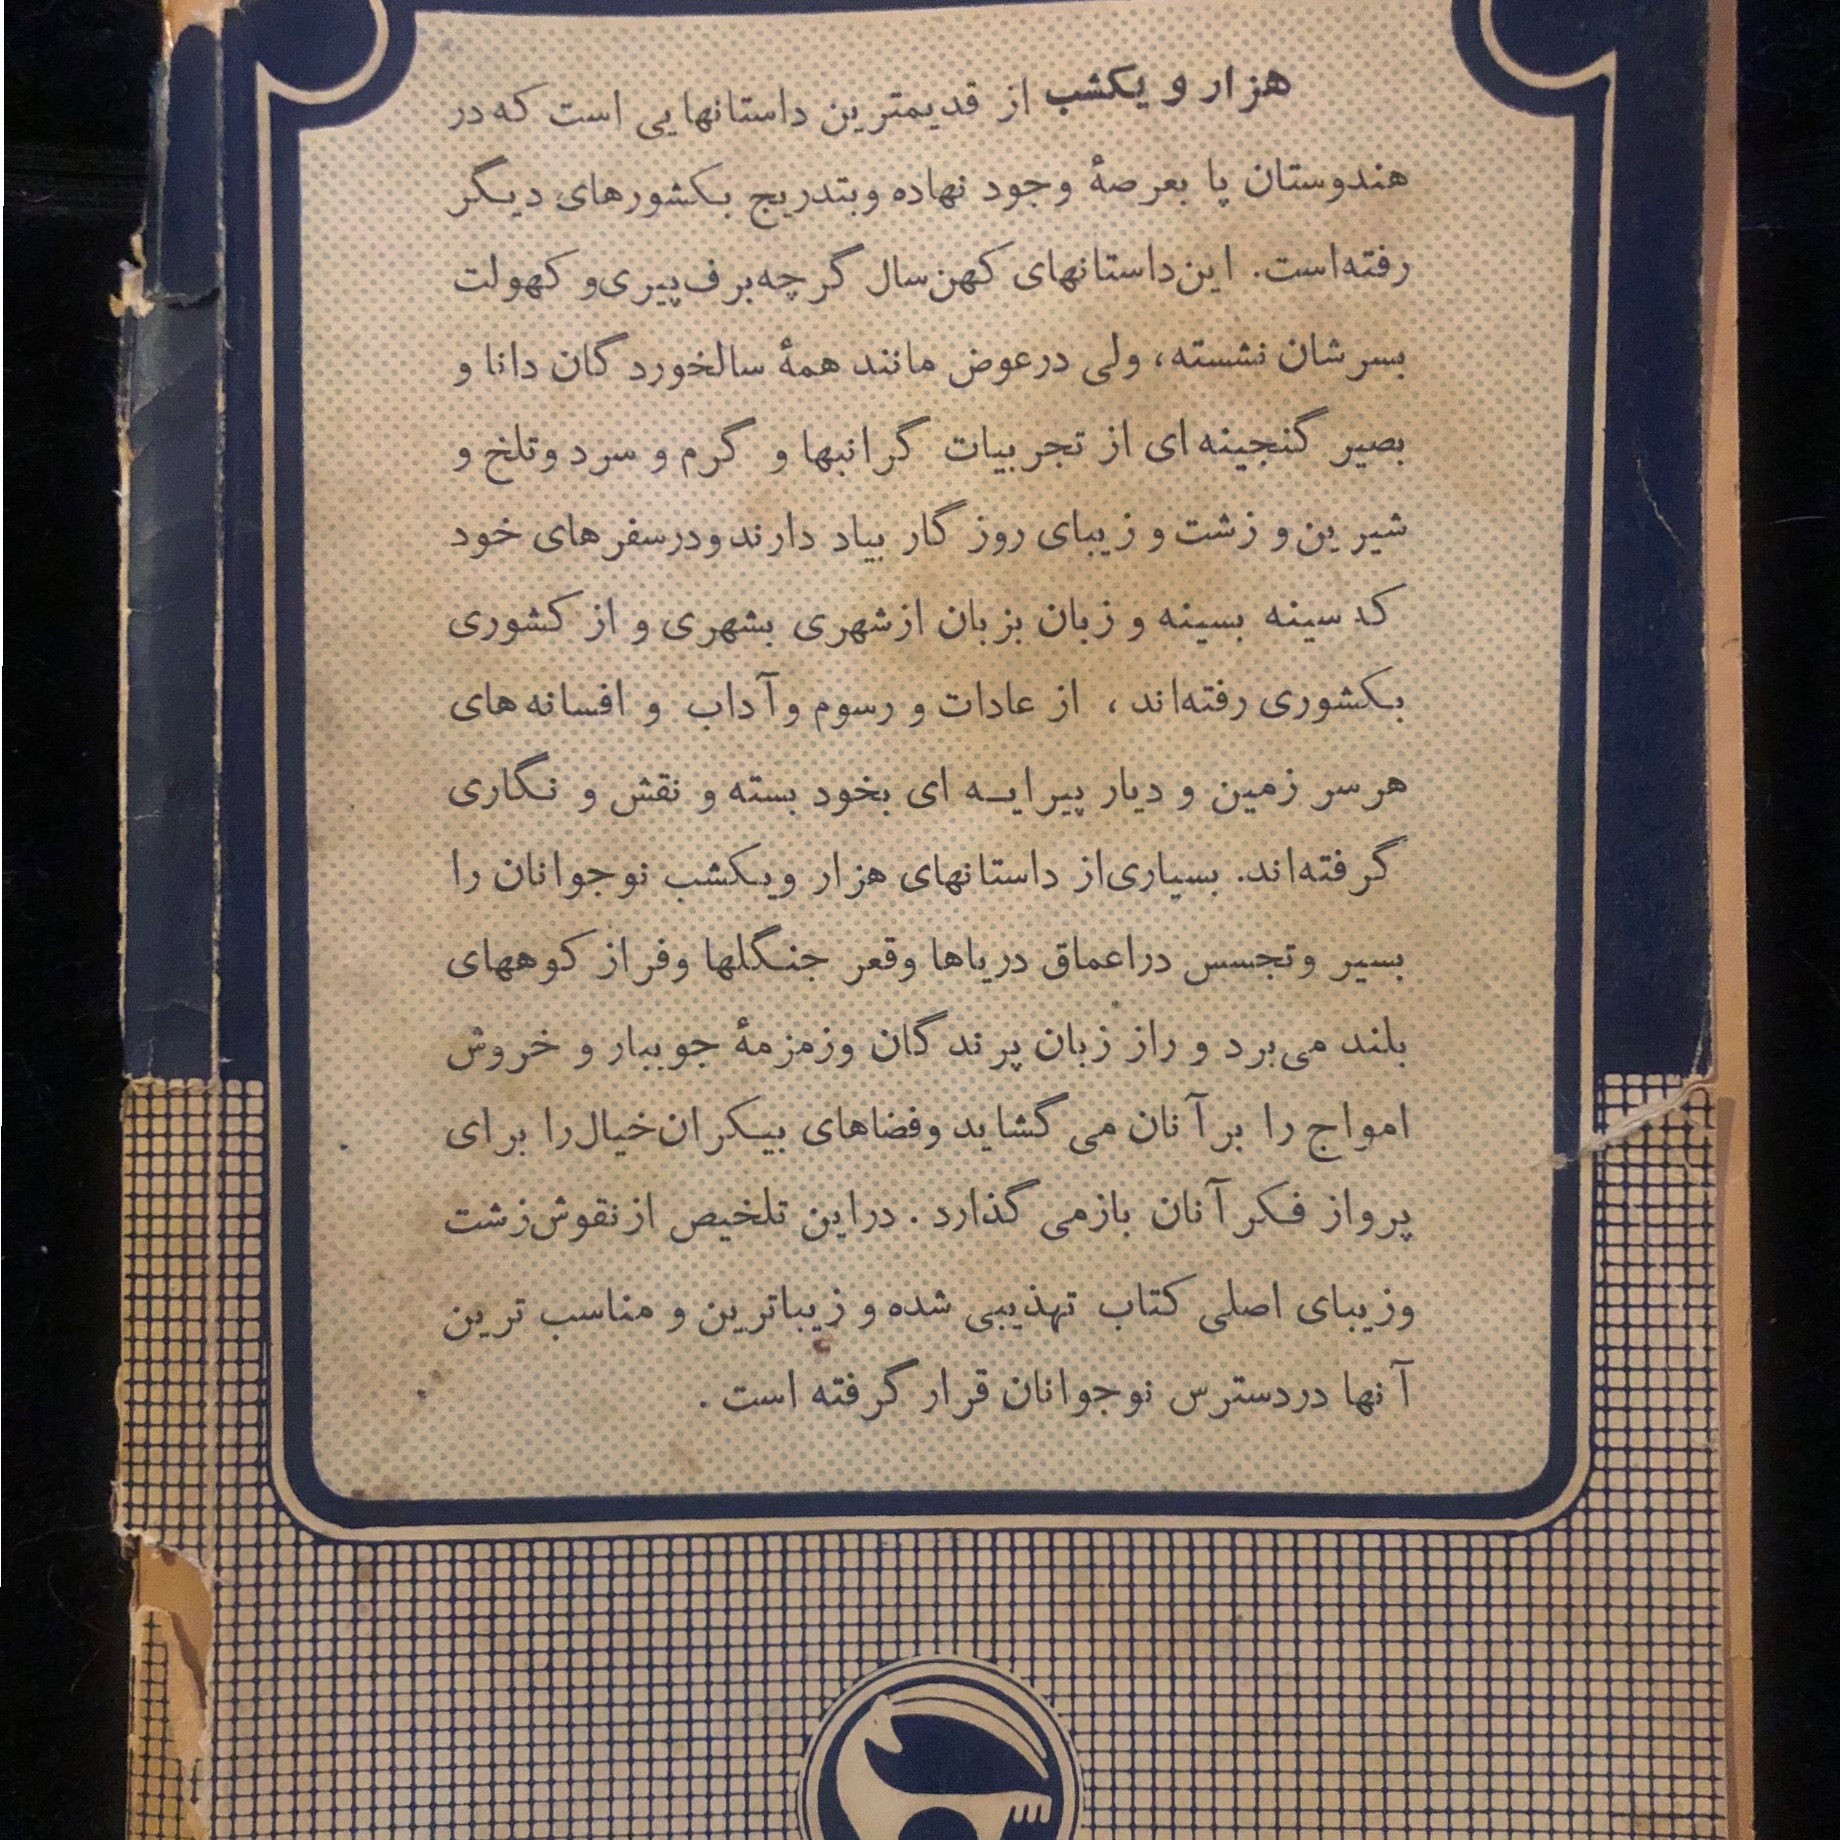 هزار و یکشب از قدیمترین داستانهایی است که در
هندوستان پا بعرصهٔ وجود نهاده وبتدریج بکشورهای دیگر
رفته‌است. این‌داستانهای کهن‌سال گرچه‌برف‌پیری‌و کهولت
بسرشان نشسته، ولی درعوض مانند همهٔ سالخوردگان دانا و
بصیر گنجینه‌ای از تجربیات گرانبها و گرم و سرد وتلخ و
شیرین‌و زشت و زیبای روزگار بیاد دارند‌ودرسفرهای خود
که سینه بسینه و زبان بزبان ازشهری بشهری و از کشوری
بکشوری رفته‌اند، از عادات و رسوم وآداب و افسانه‌های
هرسر زمین و دیار پیرایه ای بخود بسته و نقش و نگاری
گرفته‌اند. بسیاری‌از داستانهای هزار ویکشب نوجوانان را
بسیر وتجسس دراعماق دریاها وقعر جنگلها وفراز کوههای
بلند می‌برد و راز زبان پرندگان وزمزمهٔ جویبار و خروش
امواج را برآنان می‌گشاید وفضاهای بیکران‌خیال‌را برای
پرواز فکرآنان بازمی گذارد. دراین تلخیص ازنقوش‌زشت
وزیبای اصلی کتاب تهذیبی شده و زیباترین و مناسب ترین
آنها دردسترس نوجوانان قرار گرفته است.